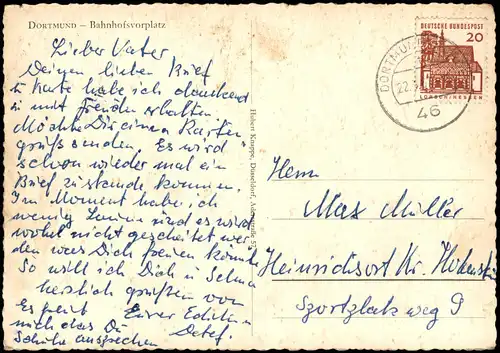 DORTMUND – Bahnhofsvorplatz
Lieber Vater
Deinen lieben Brief
u Karte habe ich dankend
u mit Freuden erhalten.
Möchte Dir einen Karten
gruß senden. Es wird
schon wieder mal ein
Brief zustande kommen.
Im Moment habe ich
wenig und es wird
wohl nicht gescheitet wer
den was Dich freuen könnte
So will ich Dich u Selma
herzlich grüßen von
Eurer Edith u
Detef.
Es freut
mich das Du
Schuhe aussprechen
Hubert Knappe, Düsseldorf, 57
DEUTSCHE BUNDESPOST
20
LORSCH/HESSEN
DORTMUND
22.
46
Herrn
Max Müller
Heinrichsort Kr. Hohenst
Sportplatzweg 9